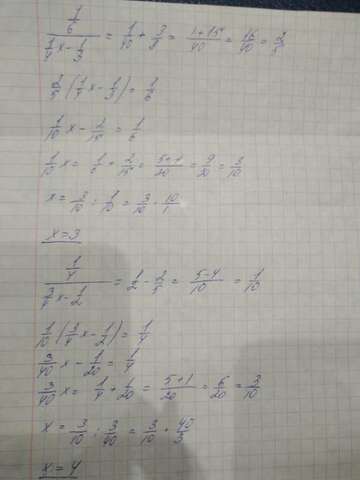 (1/6)/(1/4 x - 1/3) = 1/40 + 3/8 = (1+15)/40 = 16/40 = 2/5
2/5 (1/4 x - 1/3) = 1/6
1/10 x - 2/15 = 1/6
1/10 x = 1/6 + 2/15 = = 9/20 = 3/10
x = 3/10 : 1/10 = 3/10 · 10/1
x = 3
(1/4)/(3/4 x - 1/2) = 1/2 - 2/5 = (5-4)/10 = 1/10
1/10 (3/4 x - 1/2) = 1/4
3/40 x - 1/20 = 1/4
3/40 x = 1/4 + 1/20 = (5+1)/20 = 6/20 = 3/10
x = 3/10 : 3/40 = 3/10 · 40/3
x = 4